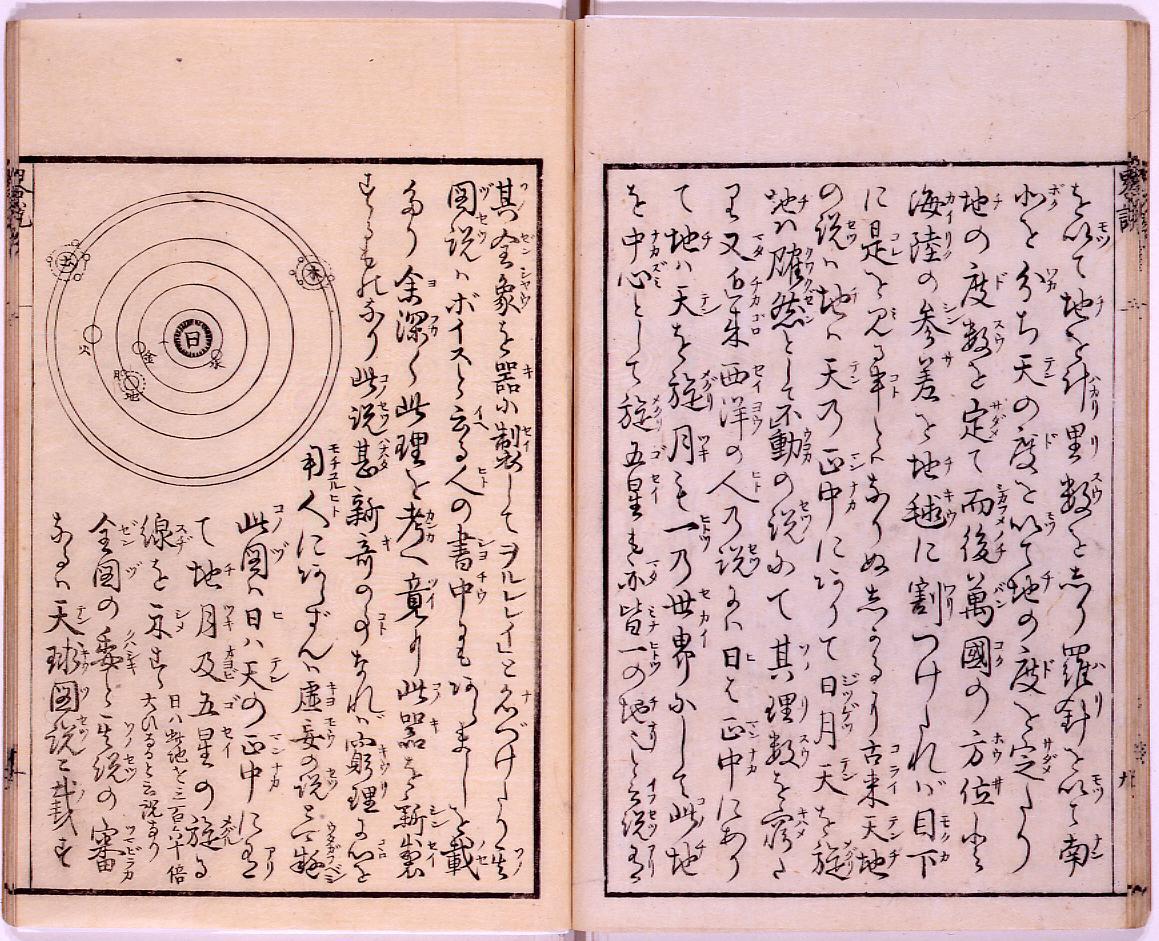 を以て地を計里数を志り羅針を以て南
北を分ち天の度を以て地の度を定たり
地の度数を定て而後萬國の方位より
海陸の参差を地毬に割つけたれバ目下
に是を見る事とハなりぬ志かるより古来天地
の説ハ地ハ天乃正中にありて日月天を旋
地ハ確然として不動の説にて其理数を究た
り又近来西洋の人乃説にハ日を正中にあり
て地ハ天を旋月も一乃世界にして此地
を中心として旋五星も亦皆一の地なりと云説有
其全象を器に制してヲルレレイと名づけたり其
図説ハボイスと云る人の書中にもありましを載
たり余深く此理を考へ竟に此器を新製
するものなり此説甚新奇のことなれバ窮理に心を
用人にあらずんハ虚妄の説と疑べし
此図ハ日ハ天の正中に有
て地月及五星の旋る
線を示す 日ハ此地を三百六十倍
大ひなると云説あり
全図の委と其説の審
なるハ天球図説に載す
日
水
金
地
月
火
木
土